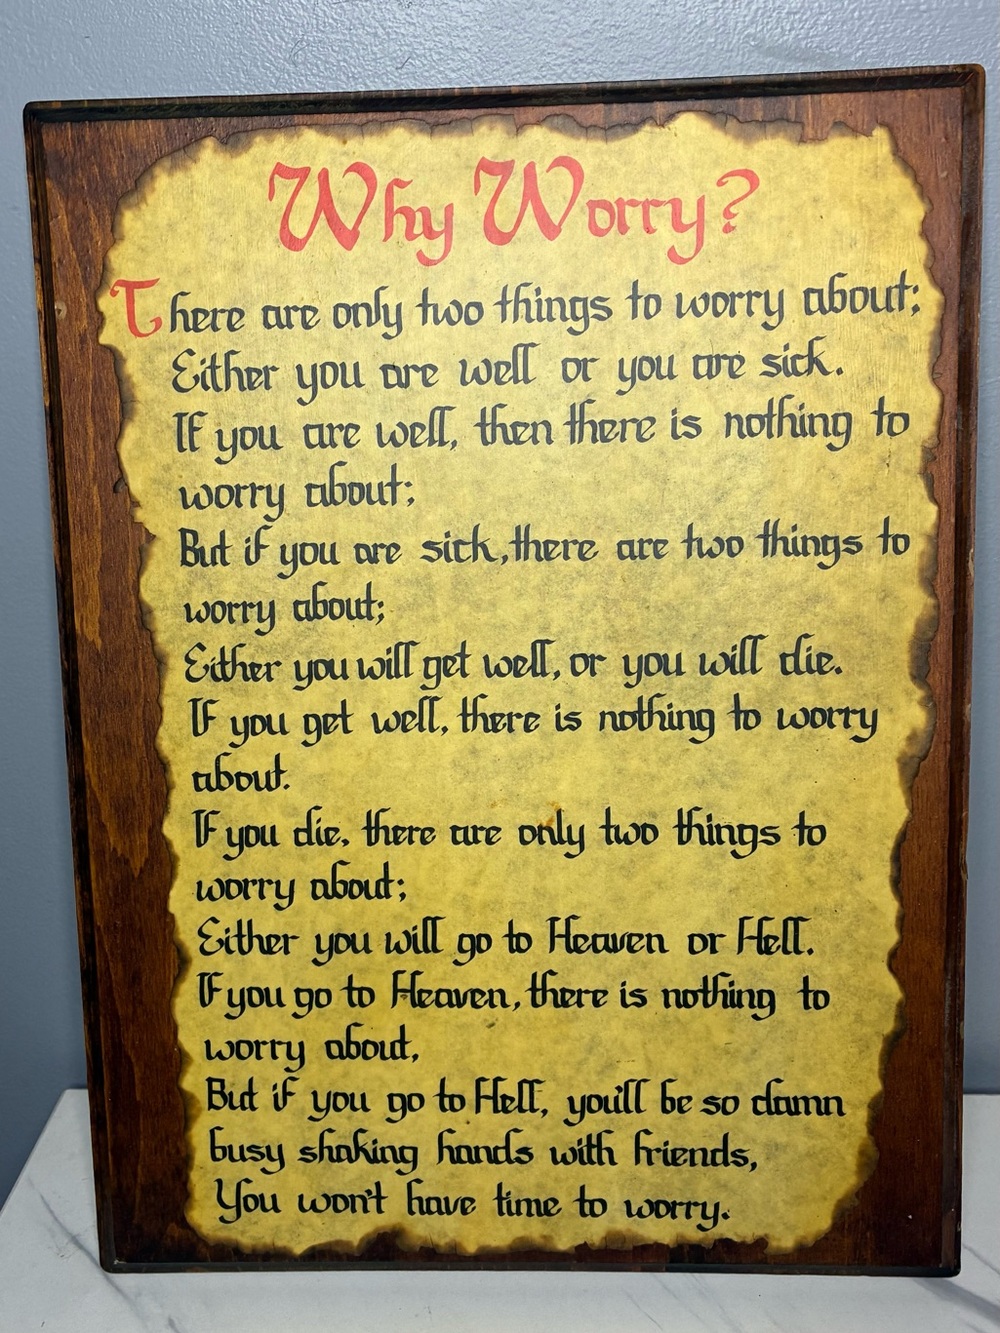 Why Worry?
There are only two things to worry about;
Either you are well or you are sick.
If you are well, then there is nothing to
worry about;
But if you are sick, there are two things to
worry about;
Either you will get well, or you will die.
If you get well, there is nothing to worry
about.
If you die, there are only two things to
worry about;
Either you will go to Heaven or Hell.
If you go to Heaven, there is nothing to
worry about,
But if you go to Hell, you'll be so damn
busy shaking hands with friends,
You won't have time to worry.